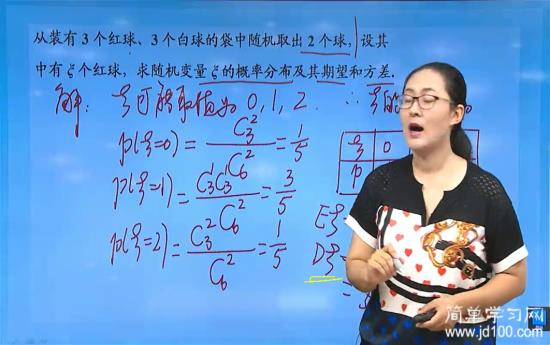 从装有3个红球、3个白球的袋中随机取出2个球,设其
中有ξ个红球,求随机变量ξ的概率分布及其期望和方差.
解: ξ可能取值为 0, 1, 2. ∴ ξ的
P(ξ=0) = C₃²/C₆² = 1/5
P(ξ=1) = C₃¹C₃¹/C₆² = 3/5
P(ξ=2) = C₃²/C₆² = 1/5
ξ 0
P
Eξ
Dξ=
=
简单学习网
www.jd100.com